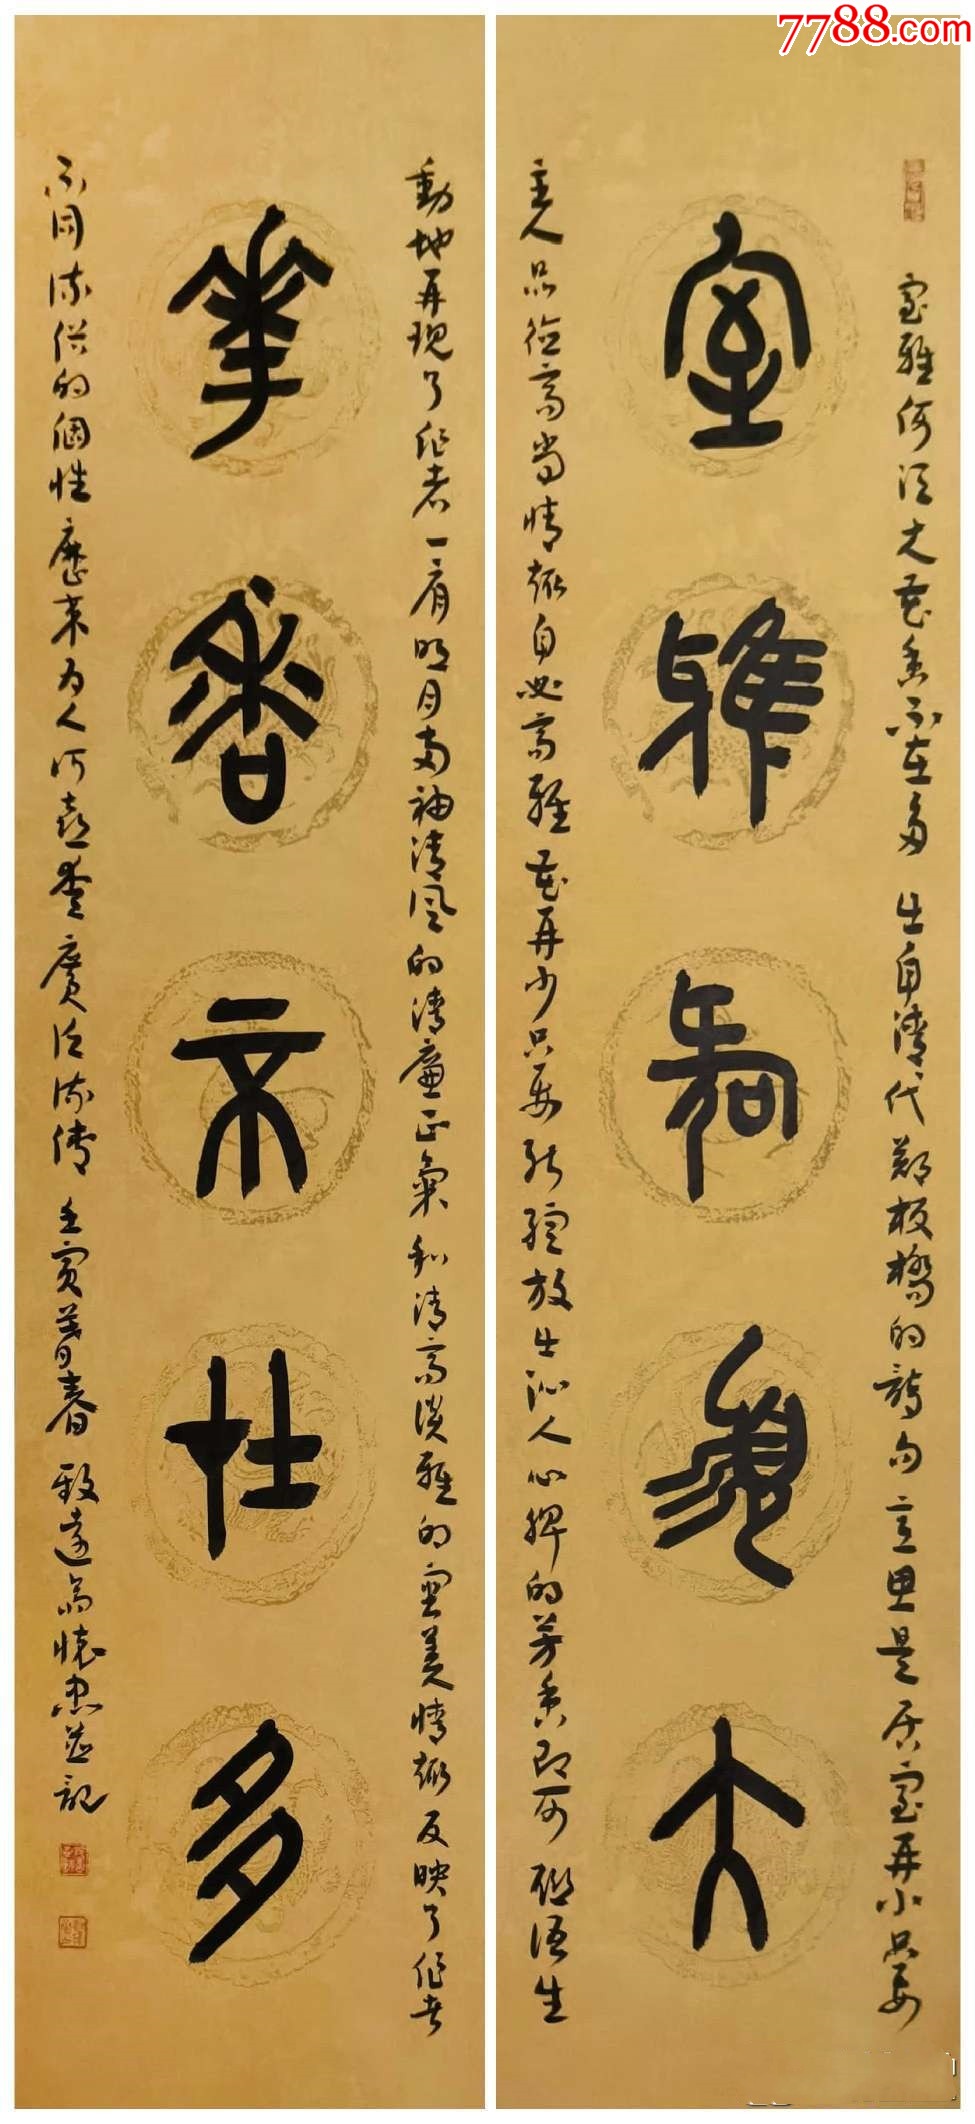 7788.com
室雅何须大花香不在多 出自清代郑板桥的詩句 立思是居室再小只要
室雅何須大
主人品德高尚情趣自必高雅 花再少只要能释放出沁人心脾的芳香即可 联语生
動地再現了作者一肩明月两袖清风的清廉正氣和清高淡雅的审美情趣反映了作者
華香不在多
不同流俗的個性歷来为人所喜愛廣泛流傳 壬寅暮春 致遠斋懷忠並記